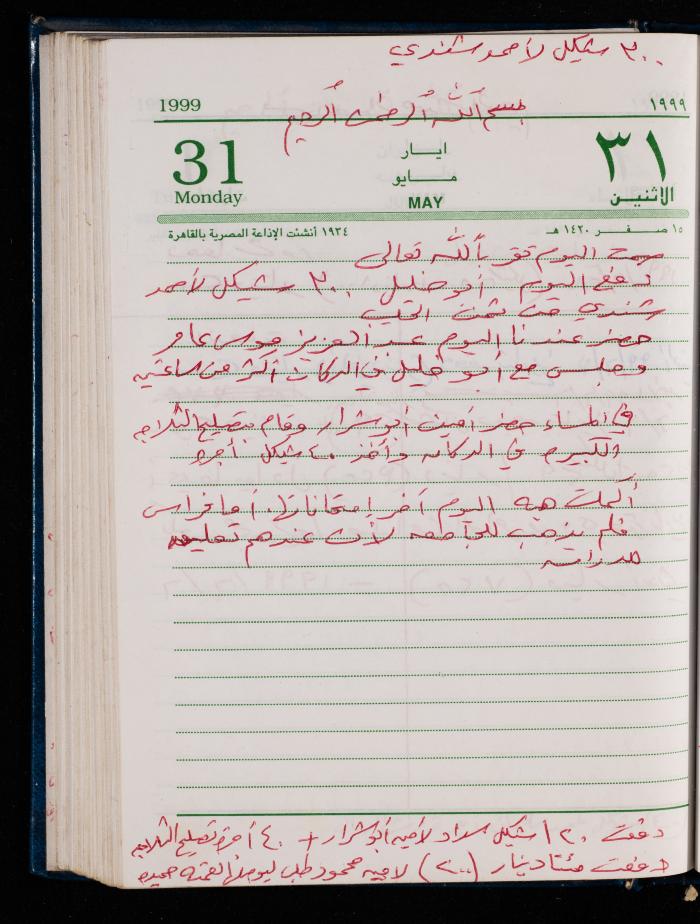 ٣٠٠ شيكل لأحمد شندي
1999 بسم الله الرحمن الرحيم ١٩٩٩
31 ايـار ٣١
Monday مـايو الاثنين
MAY
١٥ صفـر ١٤٢٠ هـ ١٩٣٤ أنشئت الإذاعة المصرية بالقاهرة
اليوم بالله تعالى
دفع اليوم أبو خليل ٣٠٠ شيكل لأحمد
شندي من ثمن الحليب
حضر عندنا اليوم عبد العزيز موسى عامر
وجلس مع أبو خليل في الدكان أكثر من ساعتين
في المساء حضر أمين أبو شرار وقام بتصليح الثلاجه
الكبيره في الدكانه وأخذ ٤٠ شيكل أجره
أكملت هبه اليوم آخر إمتحاناتها. أما فراس
فلم يذهب للجامعه لأن عندهم تعليق
للدراسه
دفعت ١٢٠ شيكل سداد لأمين أبو شرار + ٤٠ أجرة تصليح الثلاجه
دفعت مئتا دينار (٢٠٠) لامين محمود طلب ليوصلها